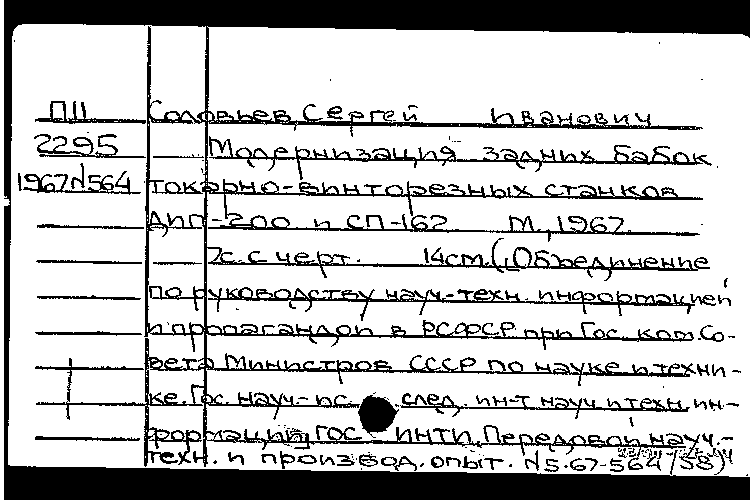 П11 Соловьев, Сергей Иванович
2295 Модернизация задних бабок
1967N564 токарно-винторезных станков
ДИП-200 и СП-162 М., 1967.
7с. с черт. 14см. („Объединение
по руководству науч.-техн. информацией
и пропагандой в РСФСР при Гос. ком. Со-
вета Министров СССР по науке и техни-
ке. Гос. науч-ис след. ин-т науч и техн. ин-
формации ГОС ИНТИ. Передовой науч.-
техн. и производ. опыт. N5-67-564/38)